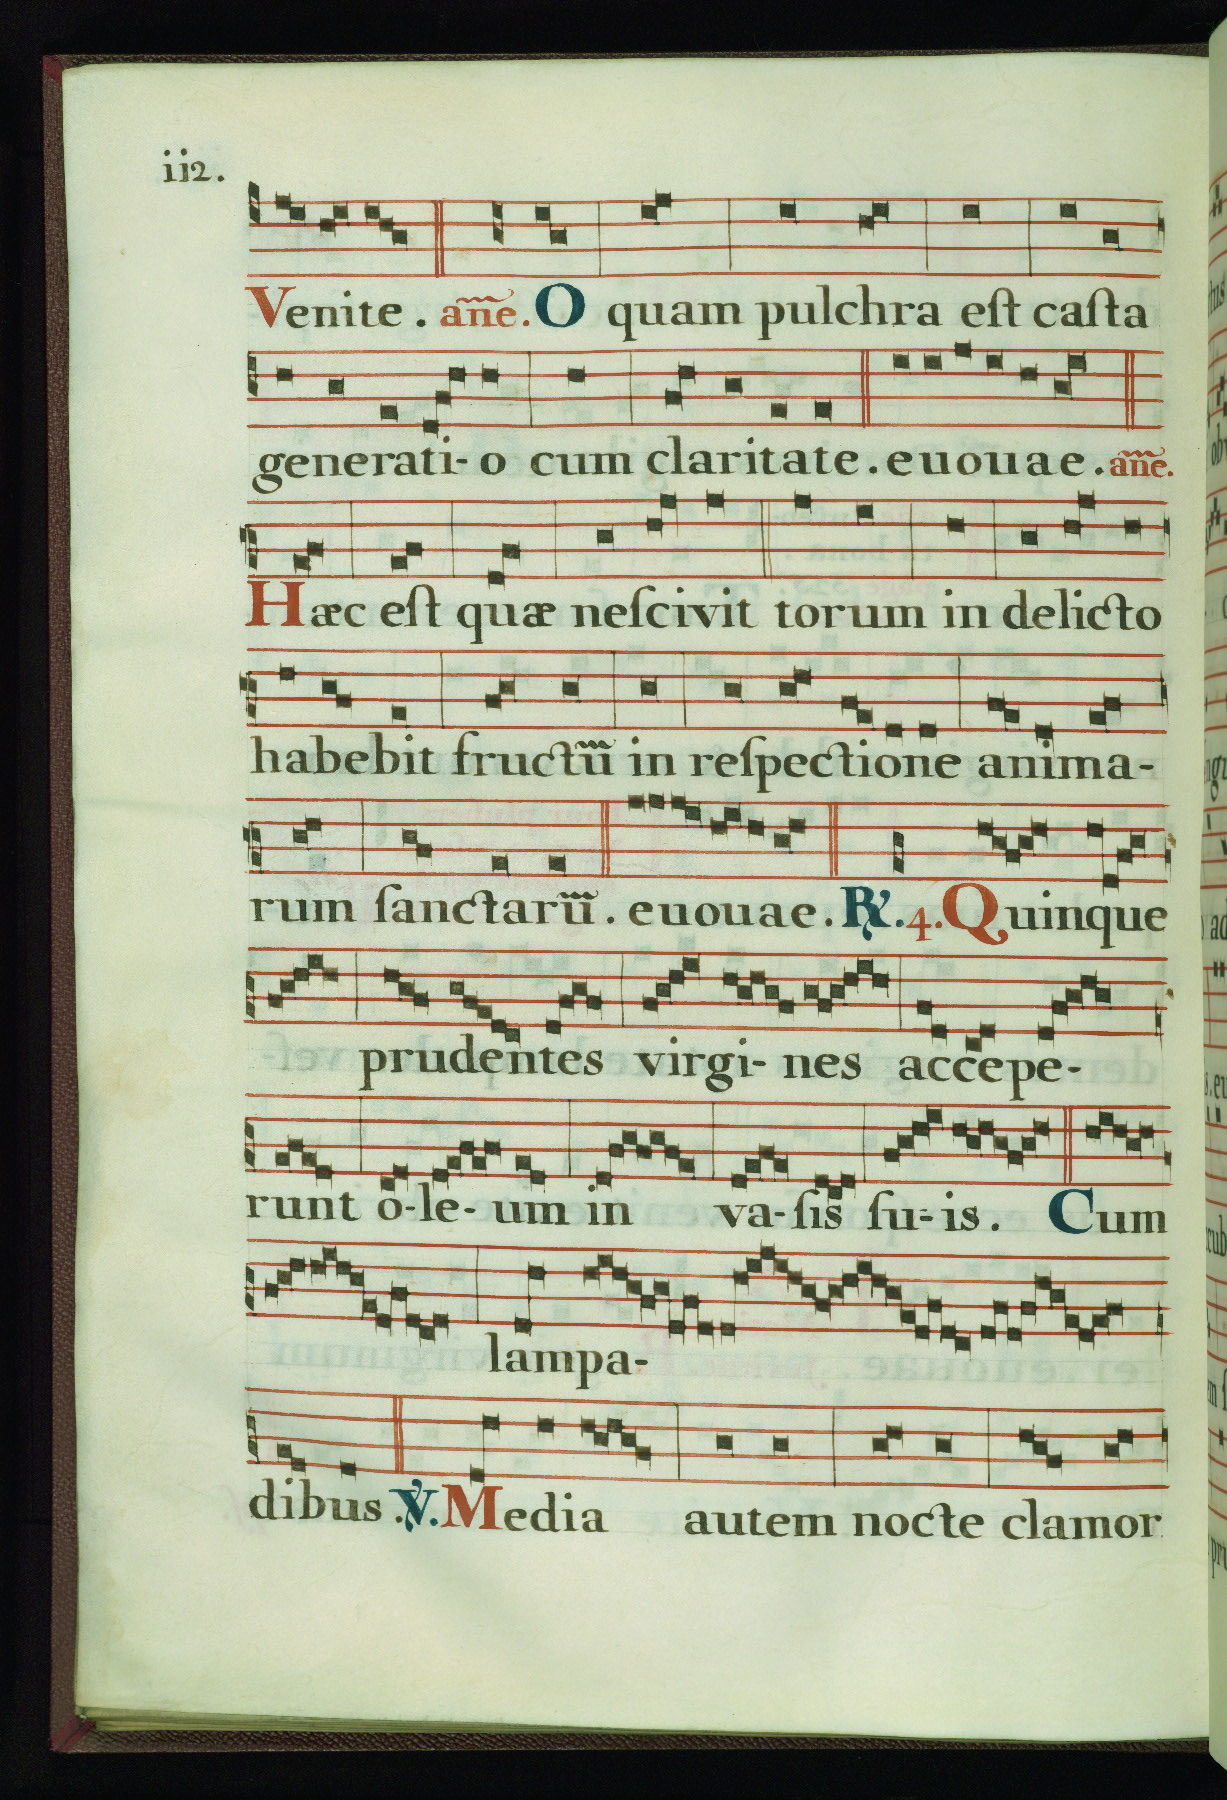 ii2.
Venite. añe. O quam pulchra eſt caſta
generati-o cum claritate. euouae. añe.
Hæc eſt quæ neſcivit torum in delicto
habebit fructũ in reſpectione anima-
rum ſanctarũ. euouae. ℟. 4. Quinque
prudentes virgi-nes accepe-
runt o-le-um in va-ſis ſu-is. Cum
lampa-
dibus. ℣. Media autem nocte clamor